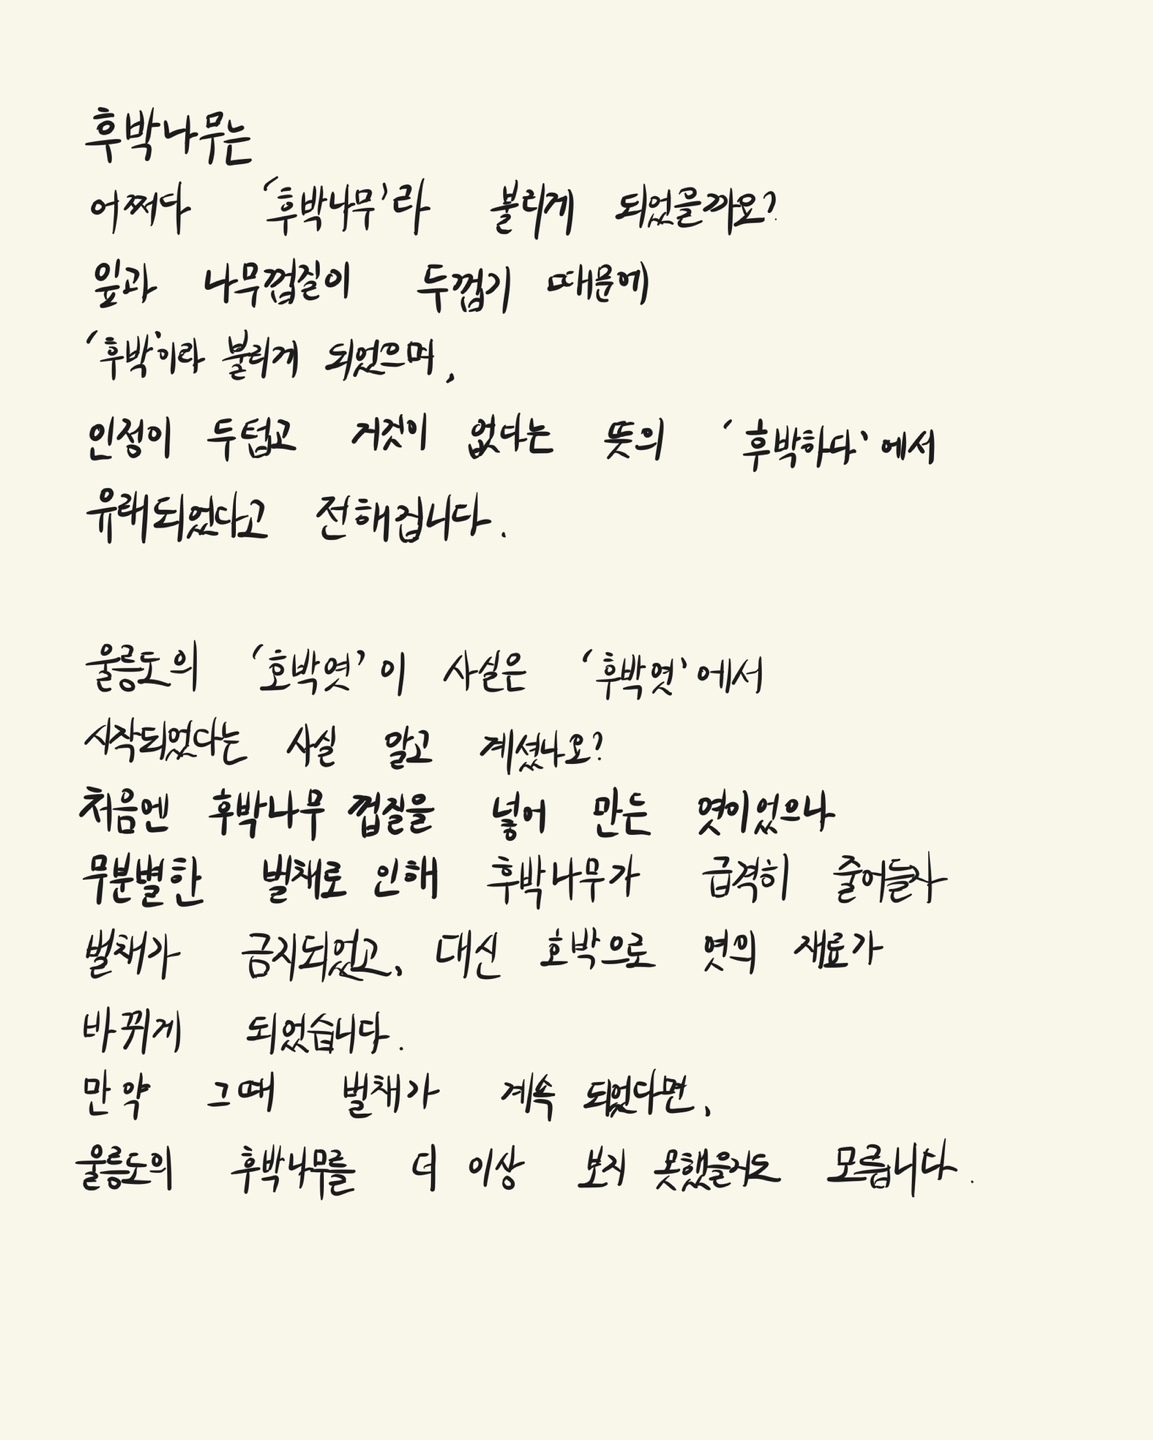 후박나무는
어쩌다 '후박나무'라 불리게 되었을까요?
잎과 나무껍질이 두껍기 때문에
'후박'이라 불리게 되었으며,
인정이 두텁고 거짓이 없다는 뜻의 '후박하다'에서
유래되었다고 전해집니다.
울릉도의 '호박엿'이 사실은 '후박엿'에서
시작되었다는 사실 알고 계셨나요?
처음엔 후박나무 껍질을 넣어 만든 엿이었으나
무분별한 벌채로 인해 후박나무가 급격히 줄어들자
벌채가 금지되었고, 대신 호박으로 엿의 재료가
바뀌게 되었습니다.
만약 그때 벌채가 계속 되었다면,
울릉도의 후박나무를 더 이상 보지 못했을지도 모릅니다.